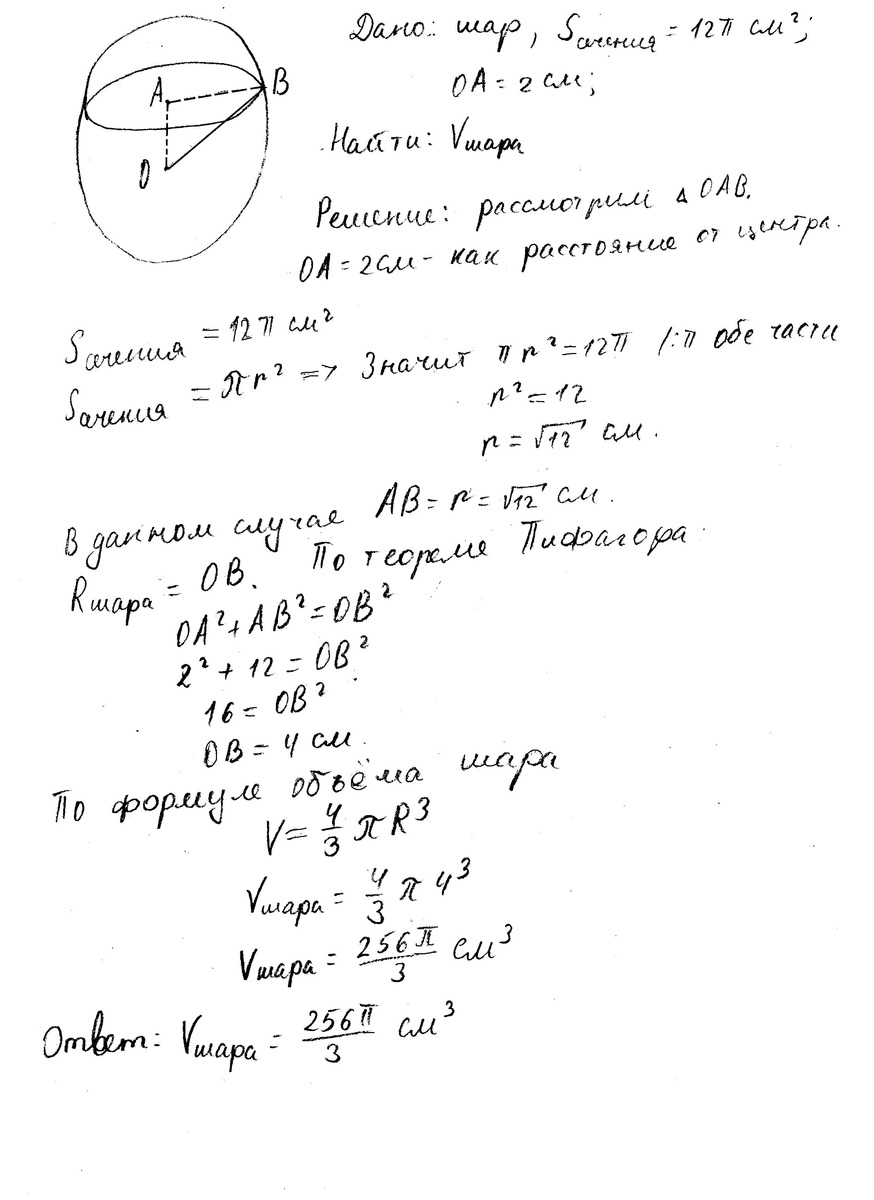 Дано: шар, Sсечения = 12π см²;
OA = 2 см;
A
B
O
Найти: Vшара
Решение: рассмотрим △ OAB.
OA = 2 см - как расстояние от центра.
Sсечения = 12π см²
Sсечения = πr² => Значит πr² = 12π /:π обе части
r² = 12
r = √12 см.
В данном случае AB = r = √12 см.
Rшара = OB. По теореме Пифагора:
OA² + AB² = OB²
2² + 12 = OB²
16 = OB²
OB = 4 см.
По формуле объёма шара
V = 4/3 πR³
Vшара = 4/3 π 4³
Vшара = 256π/3 см³
Ответ: Vшара = 256π/3 см³